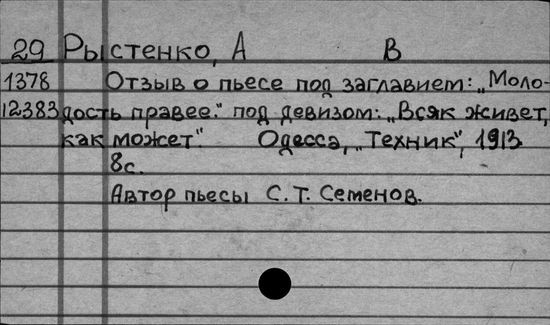 29 Рыстенко, А В
1378 Отзыв о пьесе под заглавием: „Моло-
12383 дость правее." под девизом: „Всяк живет,
как может." Одесса, „Техник", 1913
8с.
Автор пьесы С. Т. Семенов.